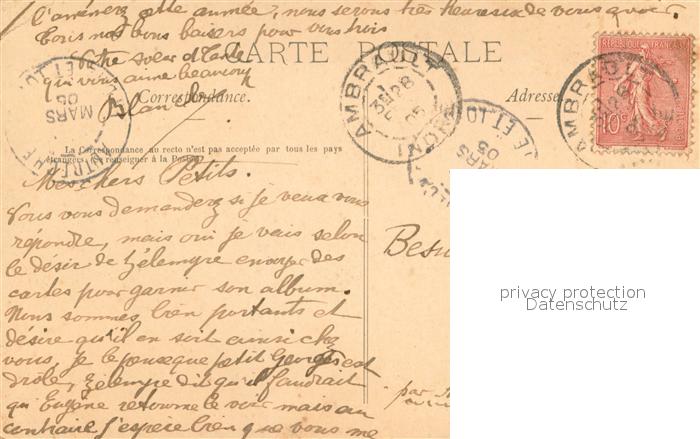 l'amènerez cette année, nous serons très heureux de vous avoir.
Tous nos bons baisers pour vous trois
Votre soeur et tante
qui vous aime beaucoup
Blanche
CARTE POSTALE
Correspondance.
Adresse
La Correspondance au recto n'est pas acceptée par tous les pays
étrangers. (Se renseigner à la Poste)
REPUBLIQUE FRANÇAISE
10c
AMBRAULT
28
05
MARS
05
MARS
05
AMBRAULT
Mes chers Petits.
Vous vous demanderez si je veux vous
répondre, mais oui je vais selon
le désir de Zélemyre envoyer des
cartes pour garnir son album.
Nous sommes bien portants et
désire qu'il en soit ainsi chez
vous, je le pense que petit Georges est
drôle, Zélemyre dit qu'il faudrait
qui Eugène retourne le voir mais au
contraire j'espère bien que vous me
Besu
par
privacy protection
Datenschutz